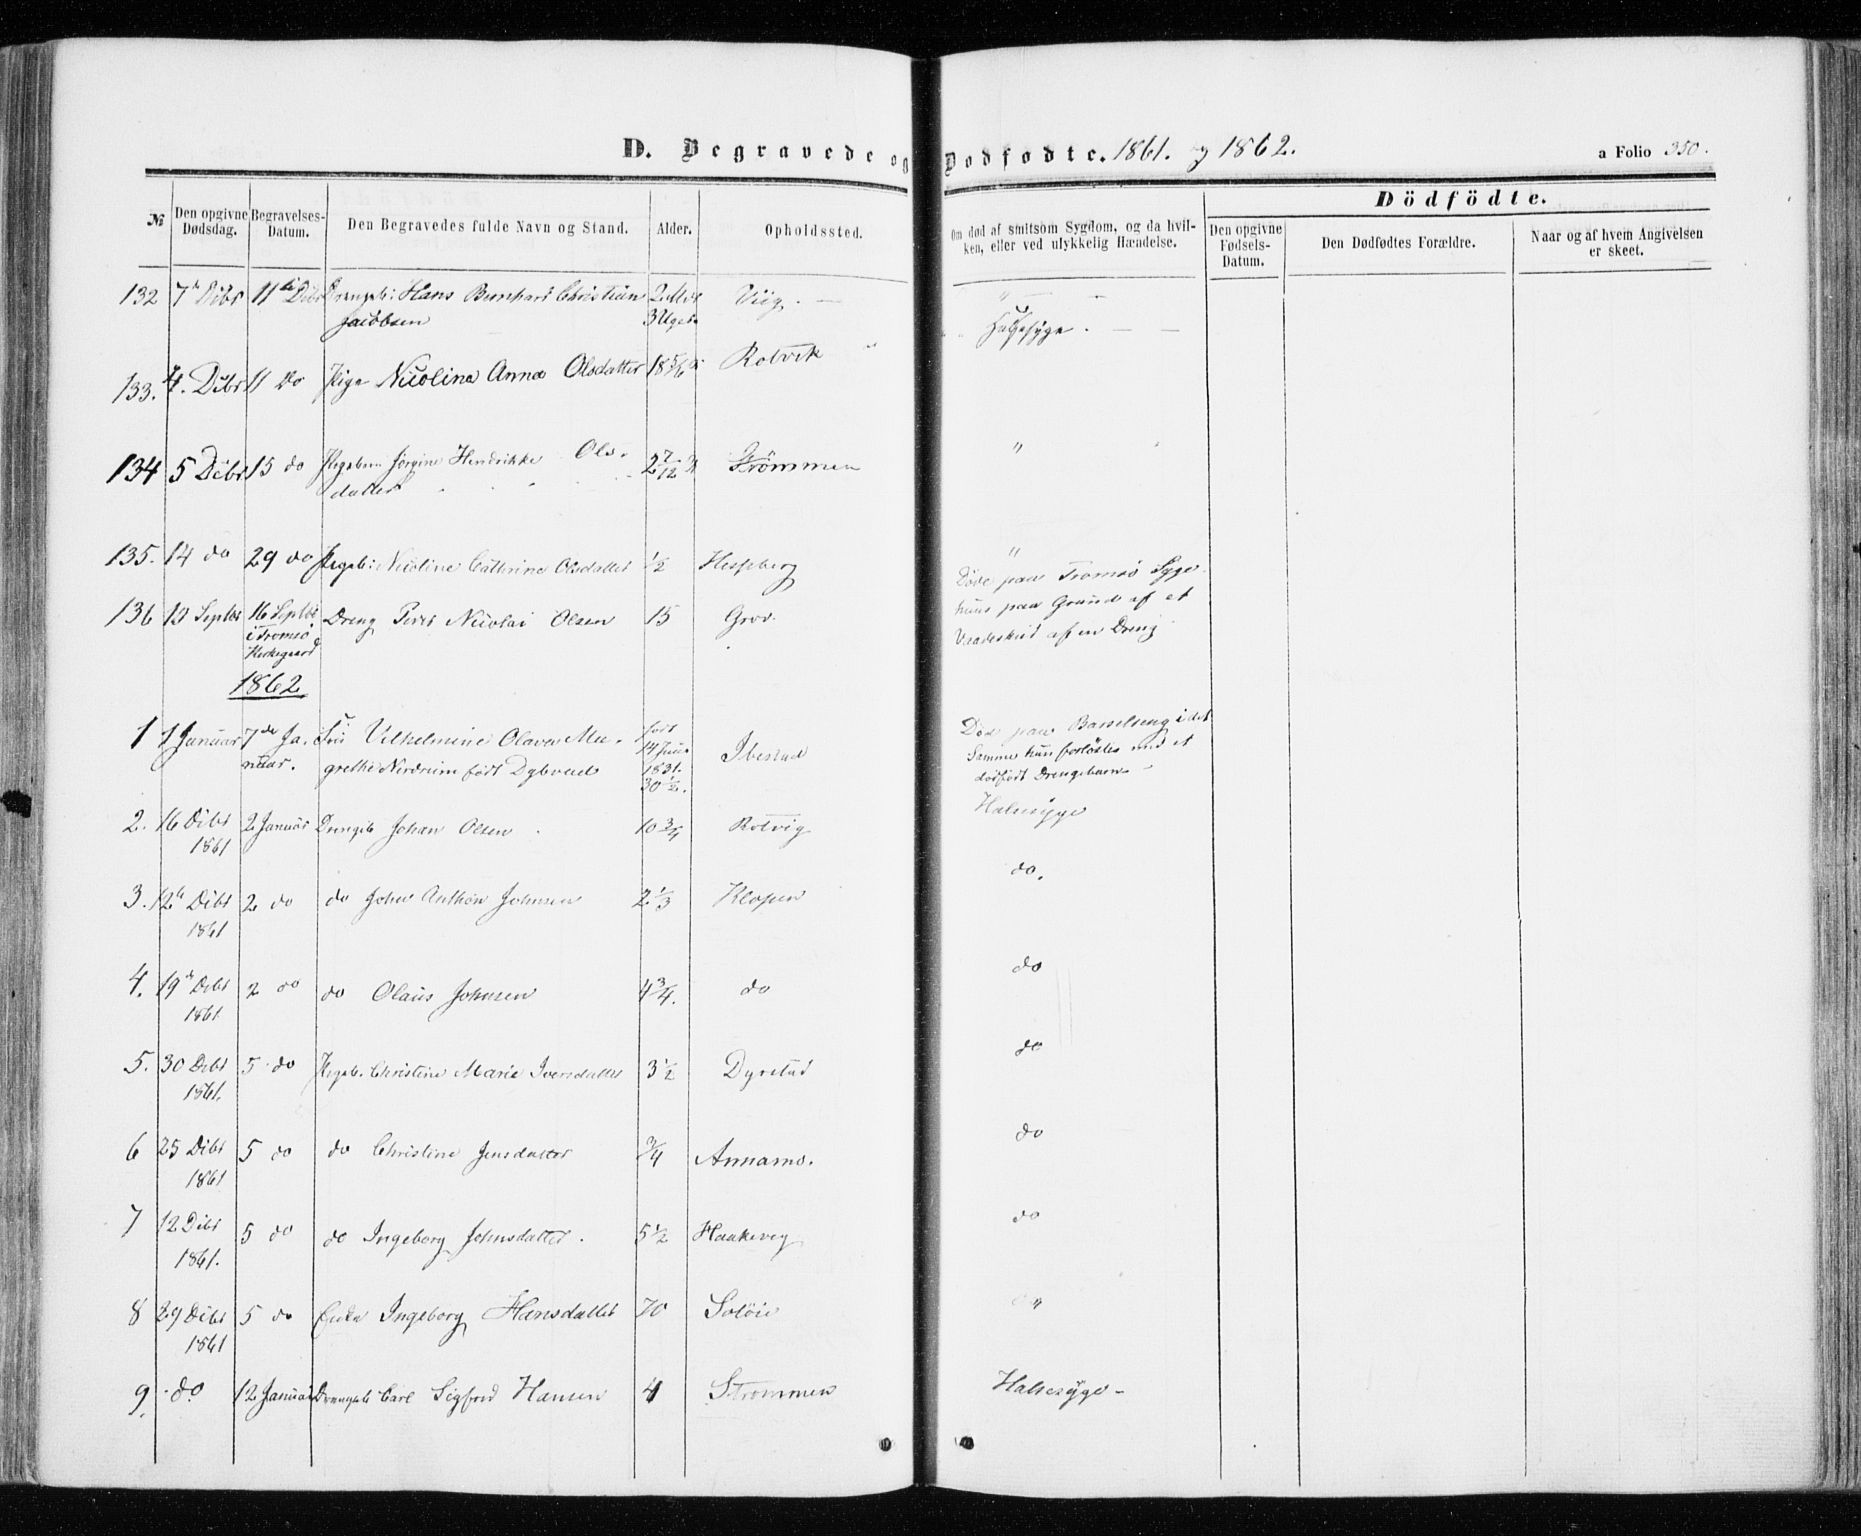 D. Begravede og Dødfødte. 1861. og 1862.
a Folio 350.
№ Den opgivne Dødsdag. Begravelses-Datum. Den Begravedes fulde Navn og Stand. Alder. Opholdssted. Om død af smitsom Sygdom, og da hvil-
ken, eller ved ulykkelig Hændelse.
Dödfödte.
Den opgivne Fødsels-Datum. Den Dødfødtes Forældre. Naar og af hvem Angivelsen er skeet.
132 7de Dcbr 11te Dcbr Drengeb: Hans Bernhard Christian 2 Mdr Viig. — "
Jacobsen 3 Uger Halssyge. — —
133. 4. Dcbr 11 Do Pige Nicolina Anna Olsdatter 18 5/6 Rotvik "
134 5 Dcbr 15 do Pigebarn Jørgine Hendrikke Ols- 2 7/12 Strømmen "
datter
135. 14 do 29 do Pigeb: Nicoline Cathrine Olsdatter 1/2 Hessberg "
136 13 Septbr 16 Septbr Dreng Peder Nicolai Olsen 15 Grov. Døde paa Tromsø Syge-
i Tromsø huus paa Grund af et
Kirkegaard Vaadeskud af en Dreng
1862
1 1 Januar 7de Ja- Fru Vilhelmine Olava Ma- født Ibestad Død paa Barselseng i det
nuar. grethe Nerdrum født Dybvad 14 Juni Samme hun forløstes med et
1831. dødfødt Drengebarn —
30 1/2.
2. 16 Dcbr 2 Januar Drengeb Johan Olsen 10 3/4 Rotvig Halssyge
1861
3. 12te Dcbr 2 do do Johan Anthon Johnsen 2 1/3 Kloven do.
1861
4. 19de Dcbr 2 do do Olaus Johnsen 4 3/4. do do
1861
5. 30 Dcbr 5 do Pigeb. Christine Marie Iversdatter 3 1/2 Dyrstad do
1861.
6 25 Dcbr 5 do do Christine Jensdatter 3/4 Annamo. do
1861
7 12 Dcbr 5 do do Ingeborg Johnsdatter. 5 1/2 Haakevig do
1861.
8 29 Dcbr 5 do Enke Ingeborg Hansdatter 70 Soløie "
1861
9. do. 12 Januar Drengeb Carl Sigfred Hansen 4 Strømmen Halssyge —